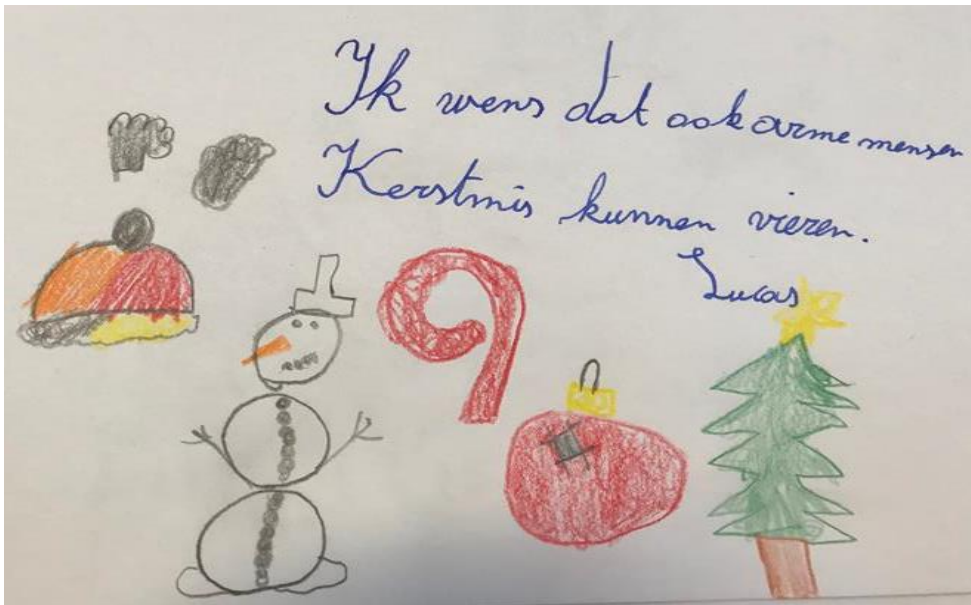 Ik wens dat ook arme mensen
Kerstmis kunnen vieren.
Lucas